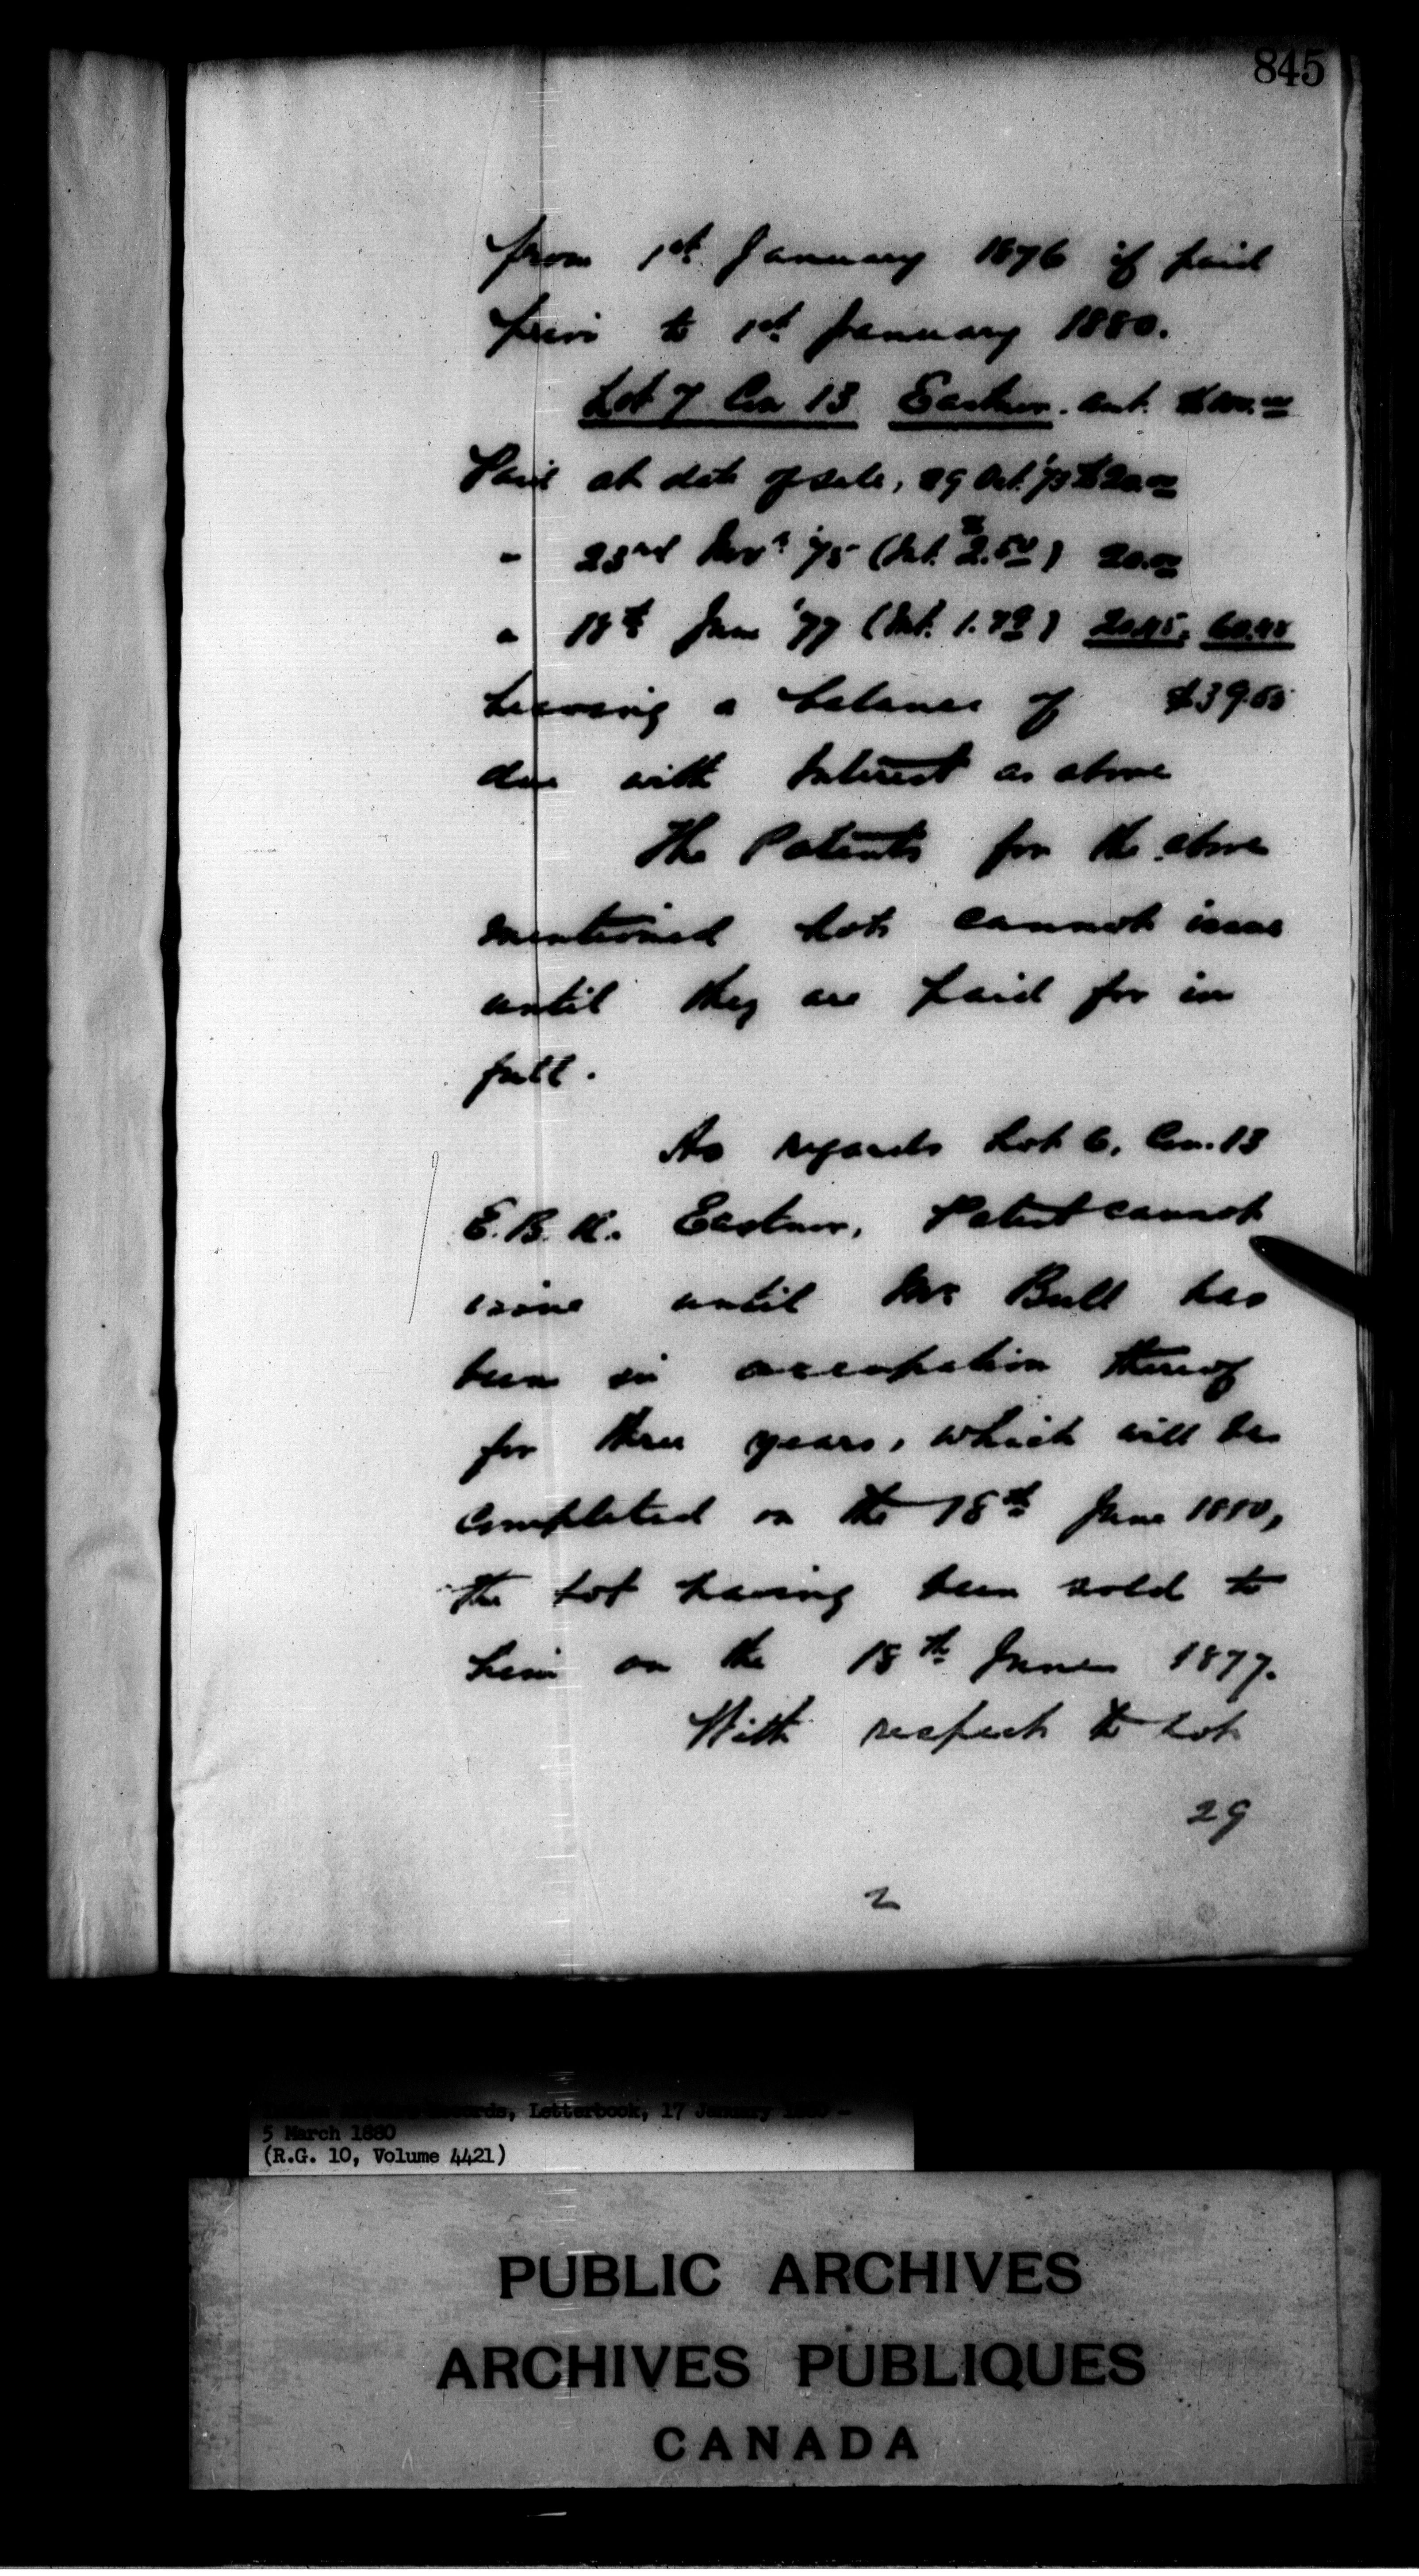 845
from 1st January 1876 if paid
prior to 1st January 1880.
Lot 7 Con 13 Eastnor. amt.
Paid at date of sale, 29 Oct. '73 $20.00
" 23rd Novr '75 (Int. $2.50) 20.00
" 18th June '77 (Int. 1.79)
Leaving a balance of $39.55
due with Interest as above
The Patents for the above
mentioned Lots cannot issue
until they are paid for in
full.
As regards Lot 6, Con. 13
E.B.R. Eastnor, Patent cannot
issue until Mr Bull has
been in occupation thereof
for three years, which will be
completed on the 18th June 1880,
the Lot having been sold to
him on the 18th June 1877.
With respect to Lot
29
2
Records, Letterbook, 17 January 1880 -
5 March 1880
(R.G. 10, Volume 4421)
PUBLIC ARCHIVES
ARCHIVES PUBLIQUES
CANADA